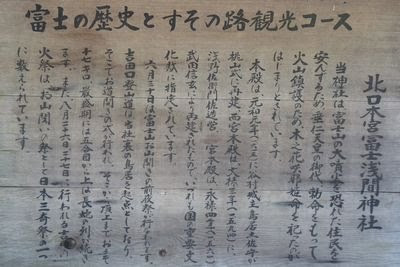 富士の歴史とすその路観光コース
北口本宮冨士浅間神社
当神社は富士山の大噴火を恐れた住民を
安んずるため、垂仁天皇の御代勅命をもって
火山鎮護のため木之花
はじまりとされています。
本殿は、元和元年(一六一五)に谷村城主鳥居土佐守が
桃山式に再建、西宮本殿は文禄三年(一五九四)に
浅野左衛門佐造営、東宮本殿は、永禄四年(一五六一)
武田信玄により再建されたもので、いずれも国の重要文
化財に指定されています。
六月三十日は富士お山開きの前夜祭が行われます。
吉田口登山道は当社裏の鳥居を起点としており、
そこでお道開きの式が行われ、その頂上までおよそ
十七粁、最盛期には五合目から上は長蛇の列が続き
ます。また八月二十六日、二十七日に行われる吉田の
火祭は、お山閉いの祭として日本三奇祭の一つ
に数えられています。